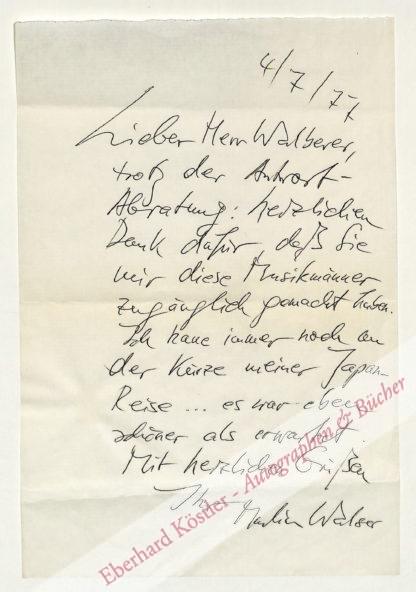 4/7/77
Lieber Herr Walberer,
trotz der Antwort-
Abratung: herzlichen
Dank dafür, daß Sie
mir diese Musikmänner
zugänglich gemacht haben.
Ich kaue immer noch an
der Kürze meiner Japan-
Reise ... es war eben
schöner als erwartet.
Mit herzlichen Grüßen
Ihr
Martin Walser
Eberhard Köstler - Autographen & Bücher